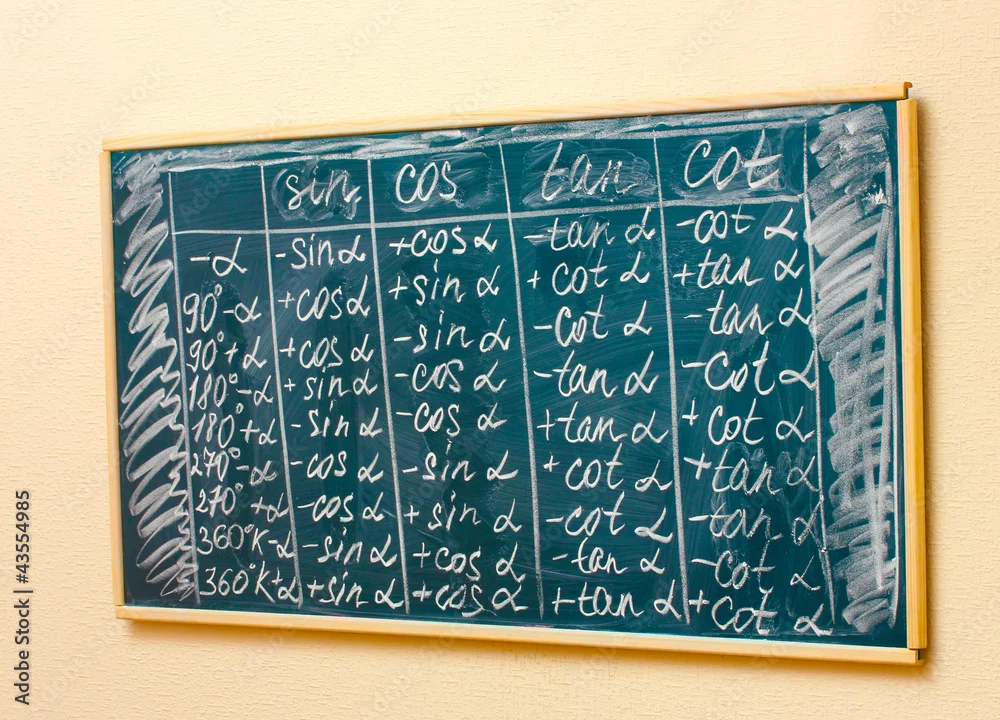 sin cos tan cot
-α -sin α +cos α -tan α -cot α
90°-α +cos α +sin α +cot α +tan α
90°+α +cos α -sin α -cot α -tan α
180°-α +sin α -cos α -tan α -cot α
180°+α -sin α -cos α +tan α +cot α
270°-α -cos α -sin α +cot α +tan α
270°+α -cos α +sin α -cot α -tan α
360°K-α -sin α +cos α -tan α -cot α
360°K+α +sin α +cos α +tan α +cot α
Adobe Stock | #43554985